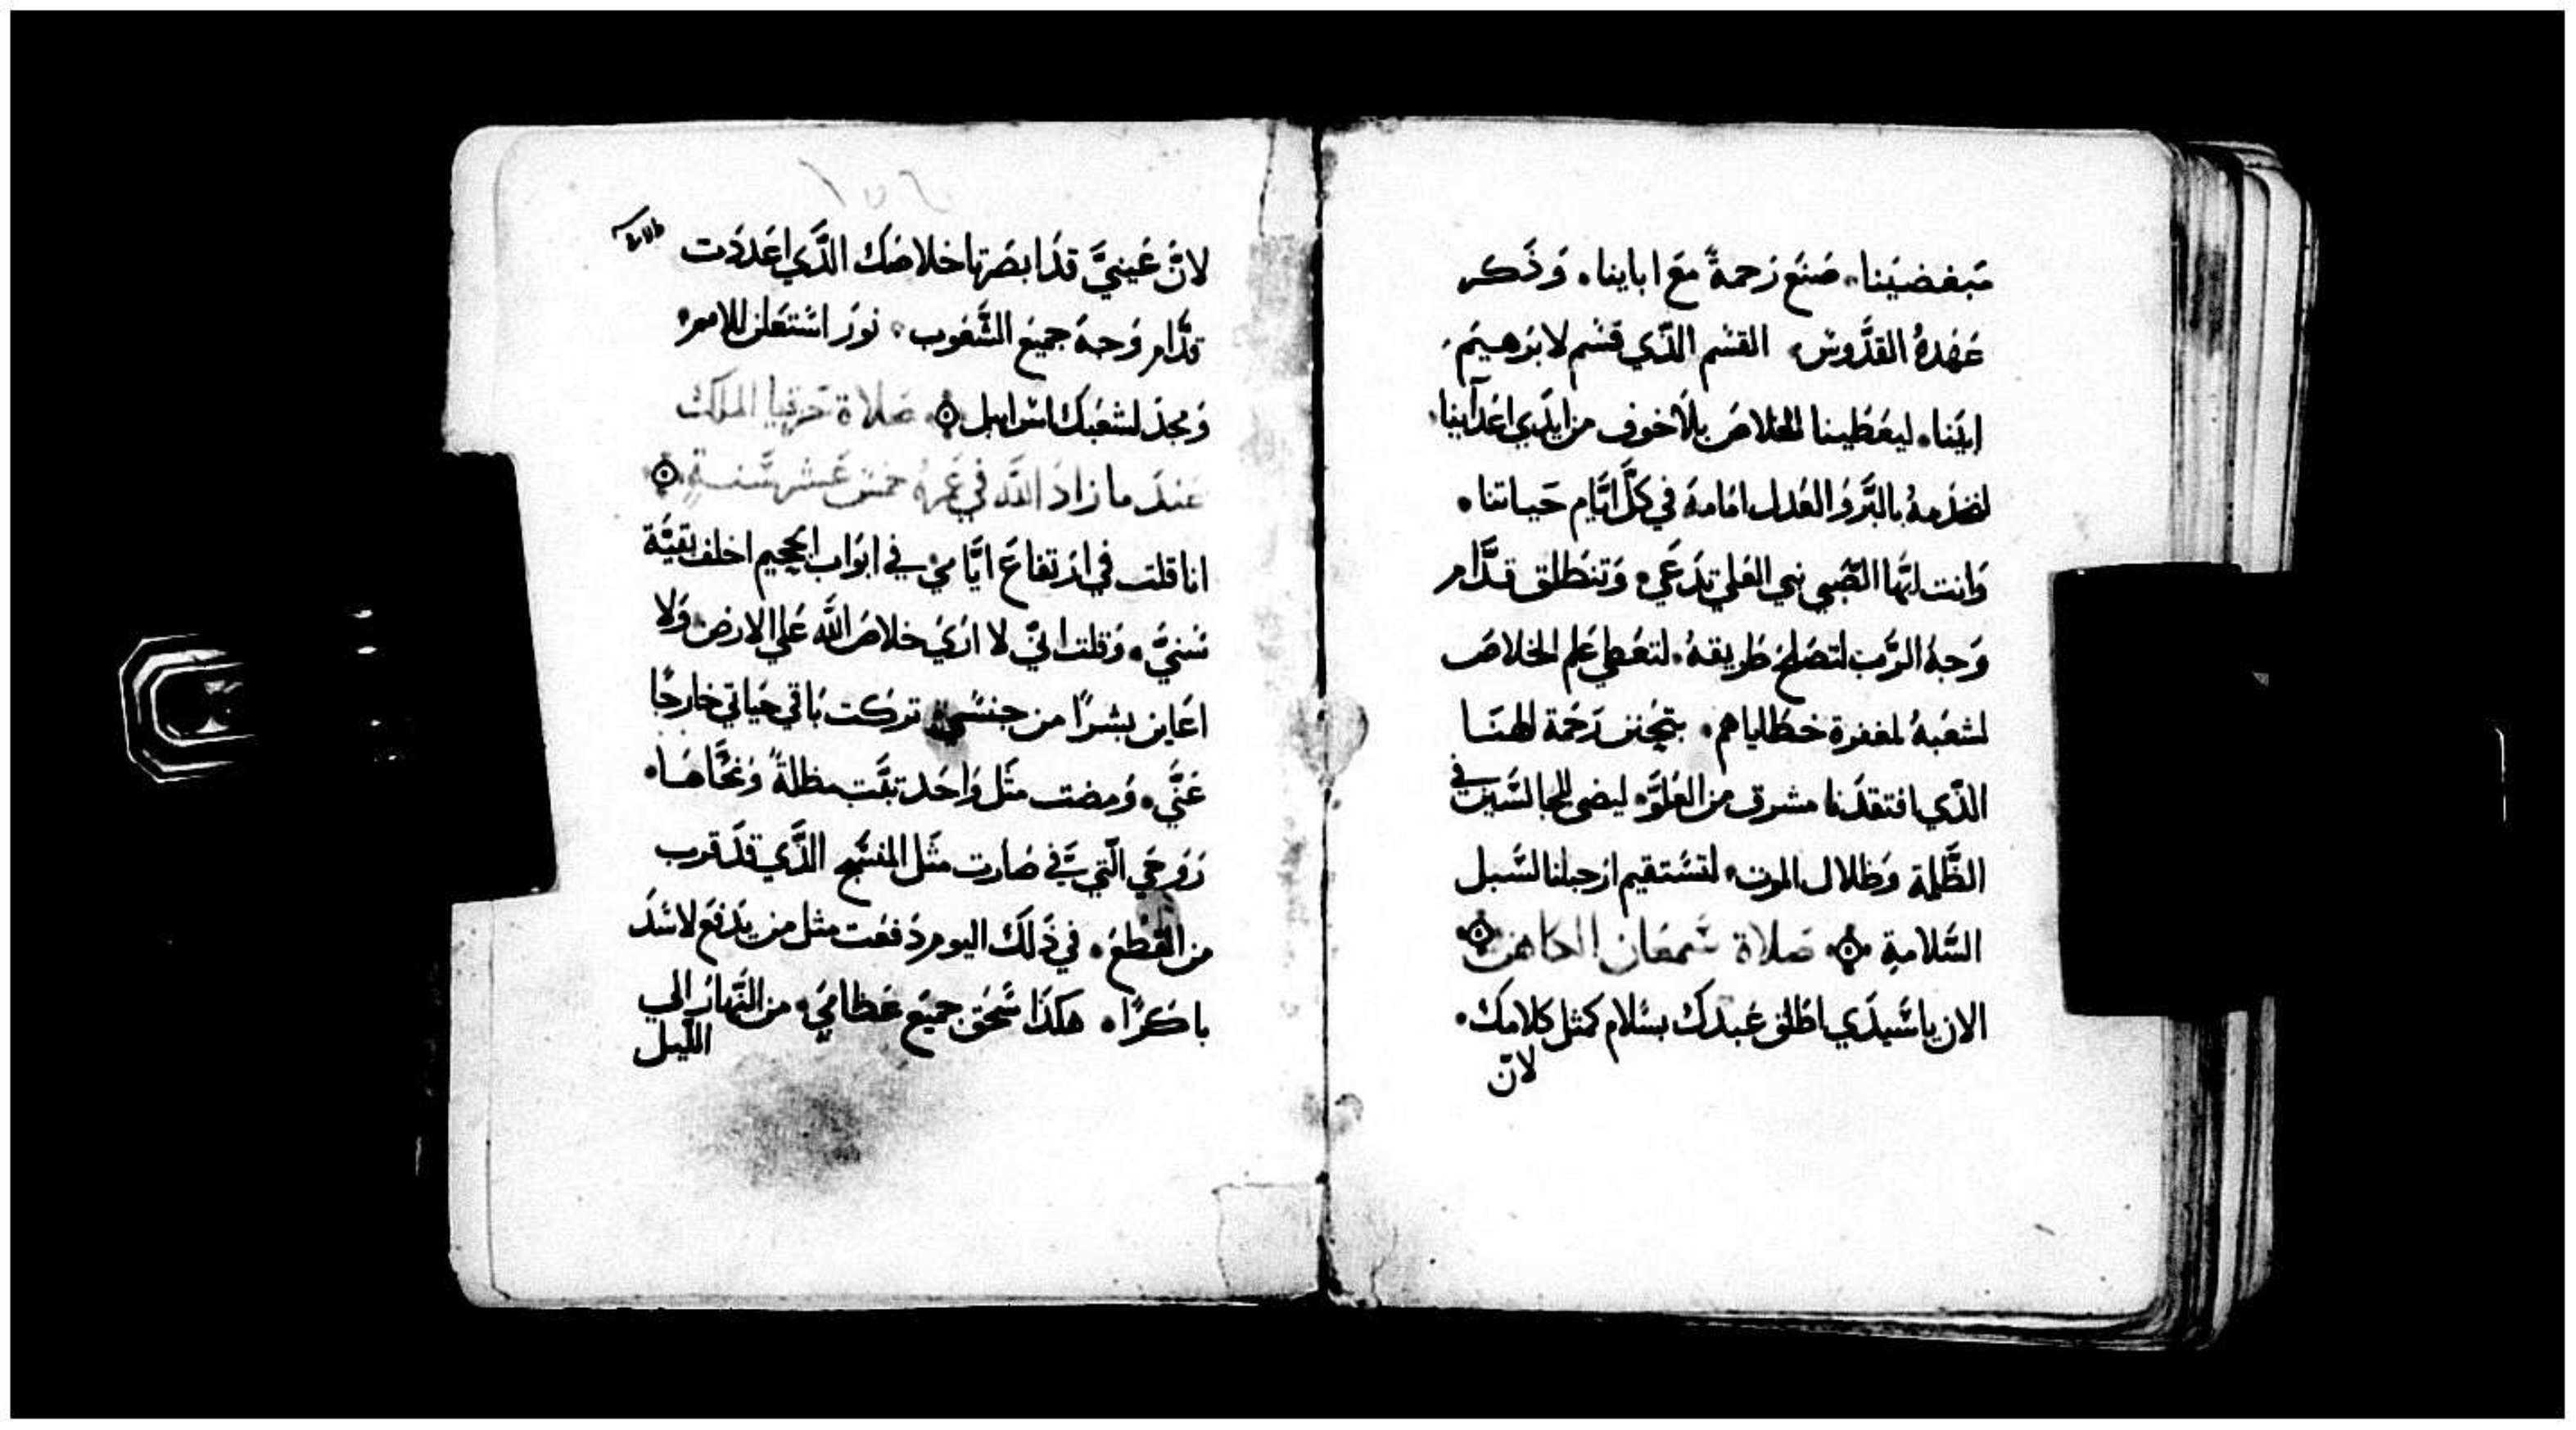 مبغضينا. صنع رحمةً مع اباينا. وذكر
عهده القدّوس. القسم الذّي قسم لابرهيم.
ابينا. ليعطينا الخلاص بلا خوف من ايدي اعدآينا.
لنخدمه بالبّر والعدل امامه في كلّ ايّام حياتنا.
وانت ايّها الصّبي نبي العلي تدعي. وتنطلق قدّام
وجه الرّب لتصلح طريقه. لتعطي علم الخلاص
لشعبه لمغفرة خطاياهم. بتحنن رحمة الهنا
الذّي افتقدنا مشرق من العلوّ. ليضي للجالسّين في
الظّلمة وظلال الموت. لتستقيم ارجلنا لسّبل
السّلامة صلاة سمعان الكاهن
الان ياسّيدي اطلق عبدك بسلام كمثل كلامك.
لانّ
لانّ عينيّ قد ابصرتا خلاصك الذّي اعددت
قدّام وجه جميع الشّعوب. نور استعلن للامم.
ومجد لشعبك اسراييل صلاة حزقيا الملك
عند ما زاد اللّه في عمره خمس عشر سّنة
انا قلت في ارتفاع ايّامي في ابواب الجحيم اخلف بقيّة
سنيّ. وقلت انّي لا اري خلاص اللّه علي الارض ولا
اعاين بشرًا من جنسي. تركت باقي حياتي خارجًا
عنّي. ومضت مثل واحد تبّت مظلةً ونحّاها.
روحي الّتي فيّ صارت مثل المنسّج الذّي قد قرب
من القطع. في ذلك اليوم دفعت مثل من يدفع لاسّد
باكرًا. هكذا سّحق جميع عظامي. من النّهار الي
اللّيل